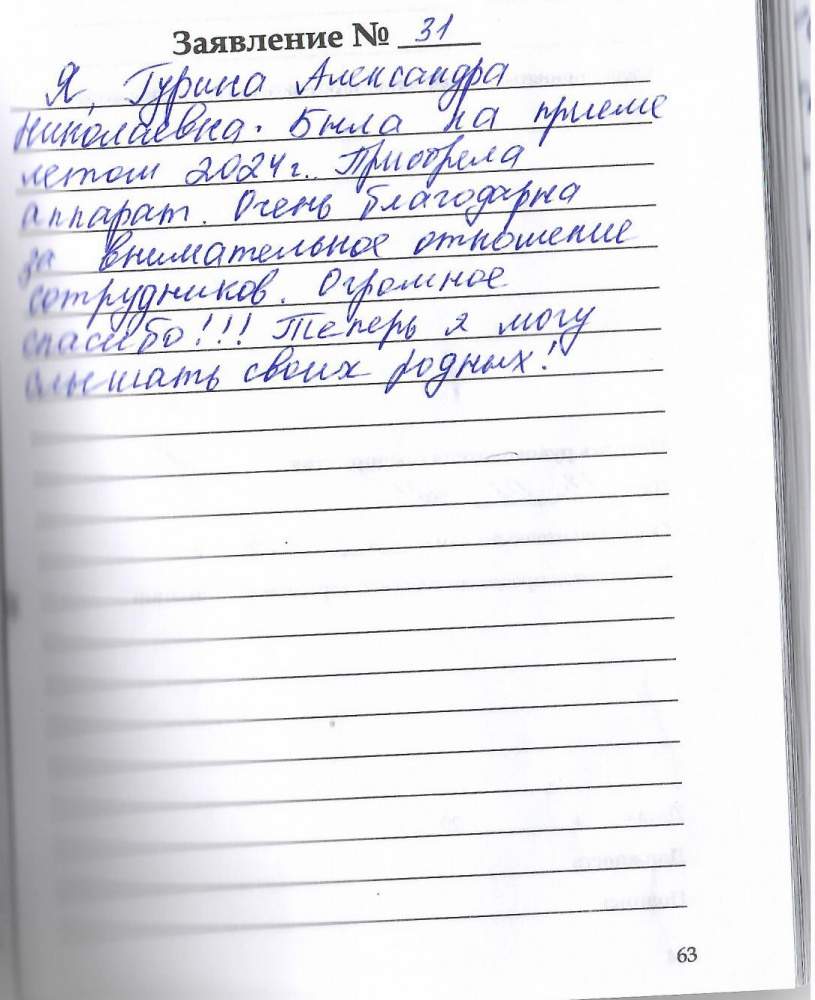 Заявление № 31
Я, Гурина Александра
Николаевна. Была на приеме
летом 2024г. Приобрела
аппарат. Очень благодарна
за внимательное отношение
сотрудников. Огромное
спасибо!!! Теперь я могу
слышать своих родных!
63